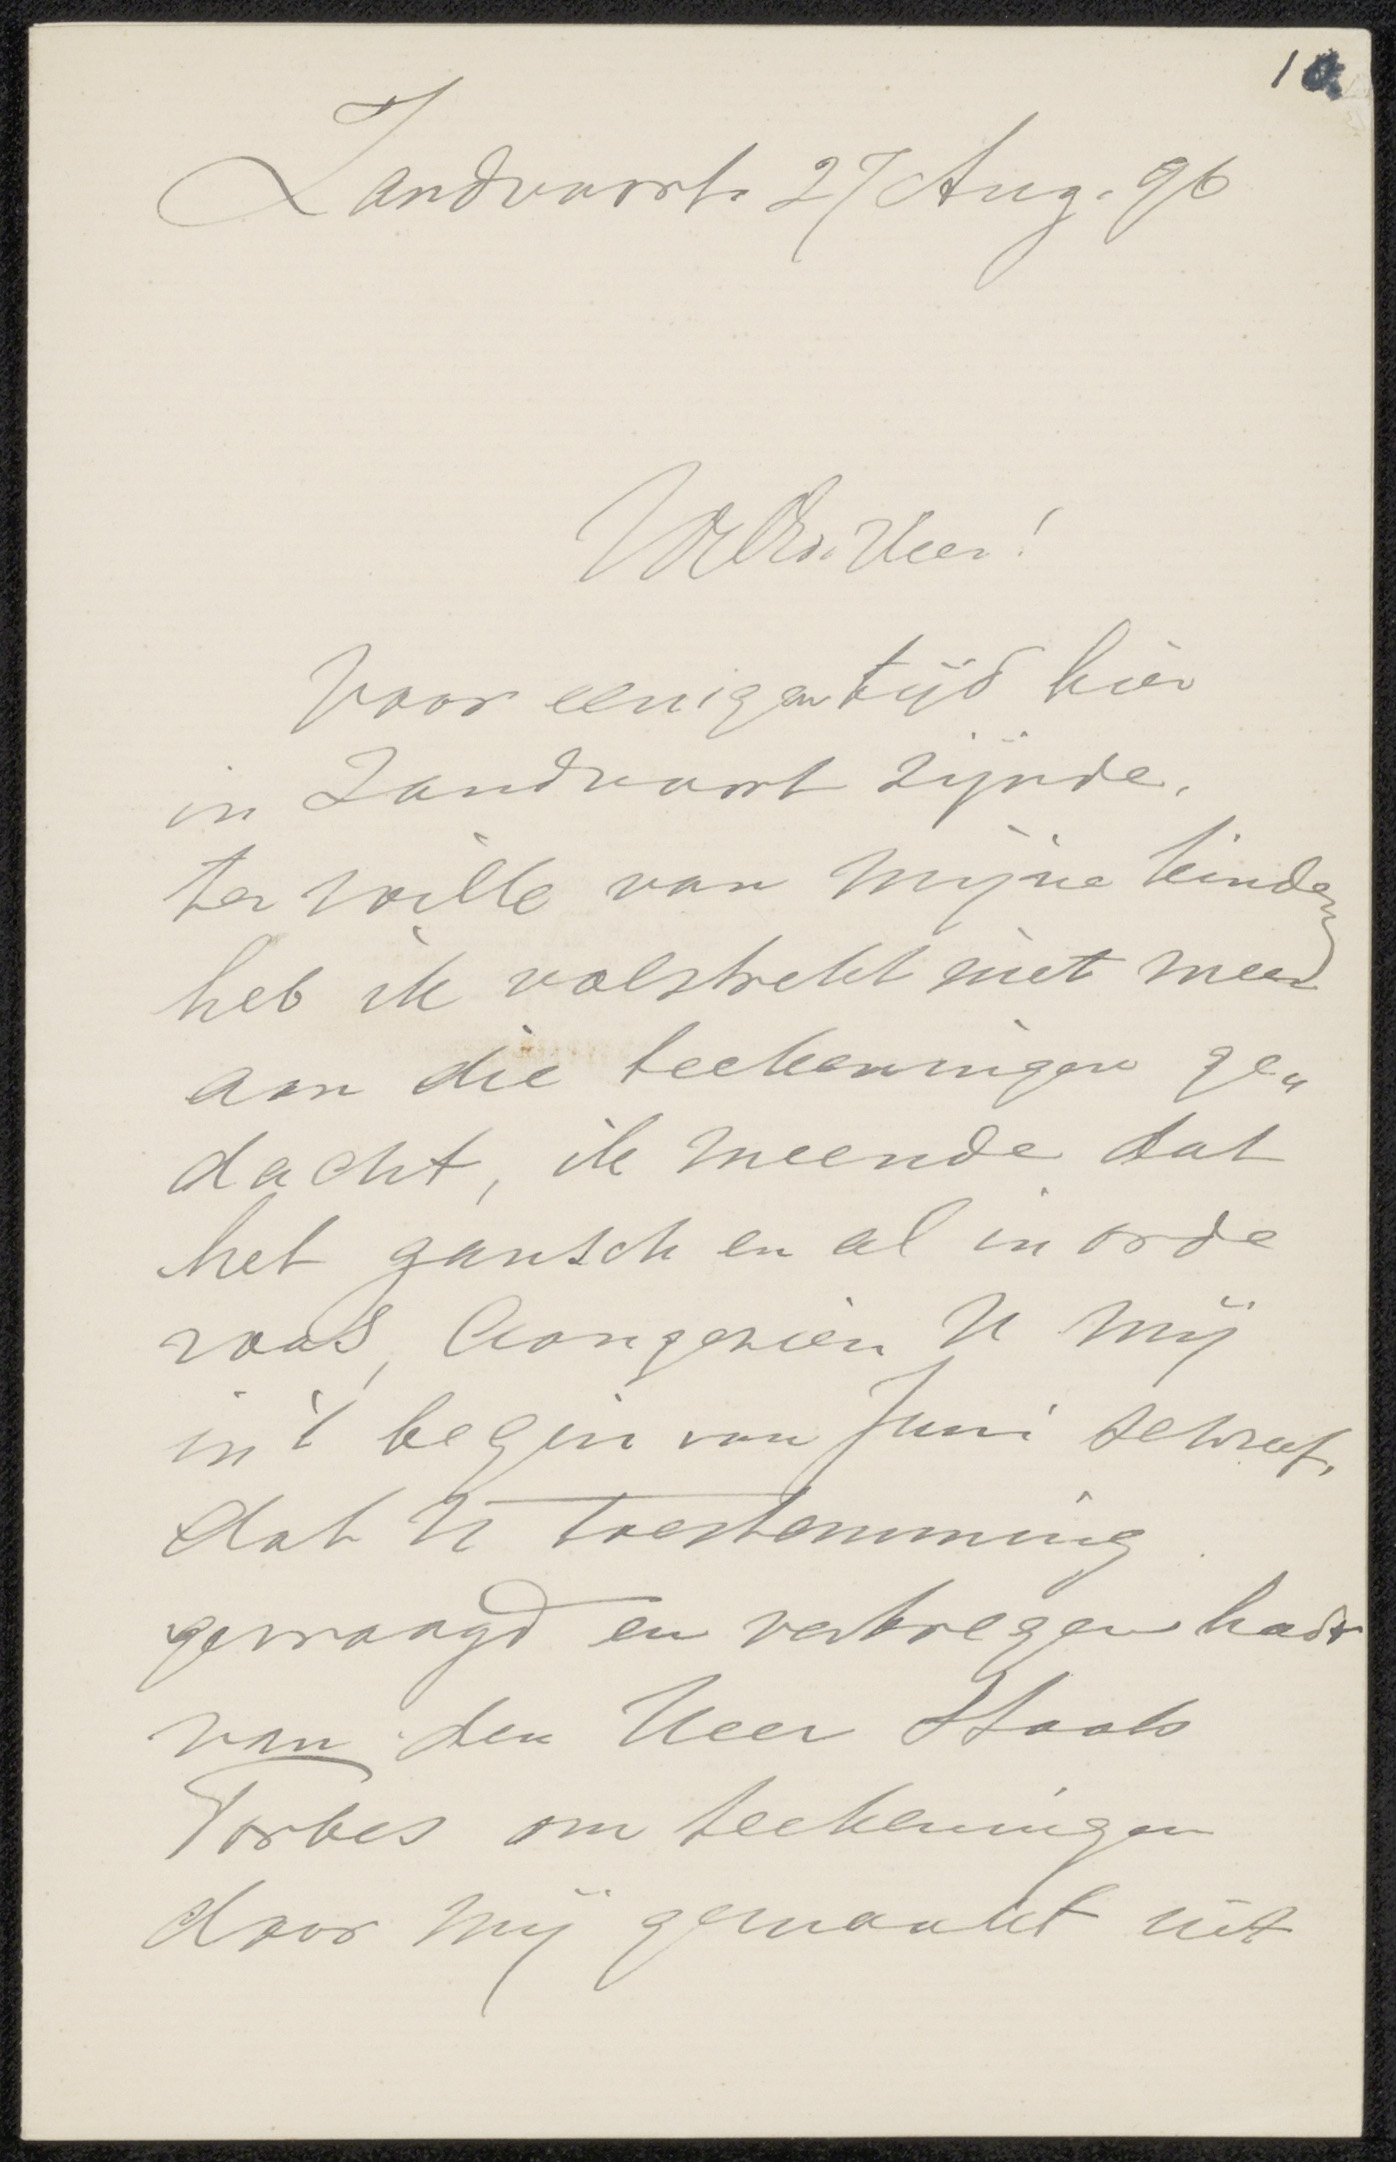 1a
Zandvoort. 27 Aug. 96
WelEd. Heer!
Voor eenigen tijd hier
in Zandvoort zijnde,
ter wille van mijne kinderen
heb ik volstrekt niet meer
aan die teekeningen ge„
dacht, ik meende dat
het gansch en al in orde
was, Aangezien U mij
in 't begin van Juni schreef,
dat U toestemming
gevraagd en verkregen hadt
van den Heer Staats
Forbes om teekeningen
door mij gemaakt uit